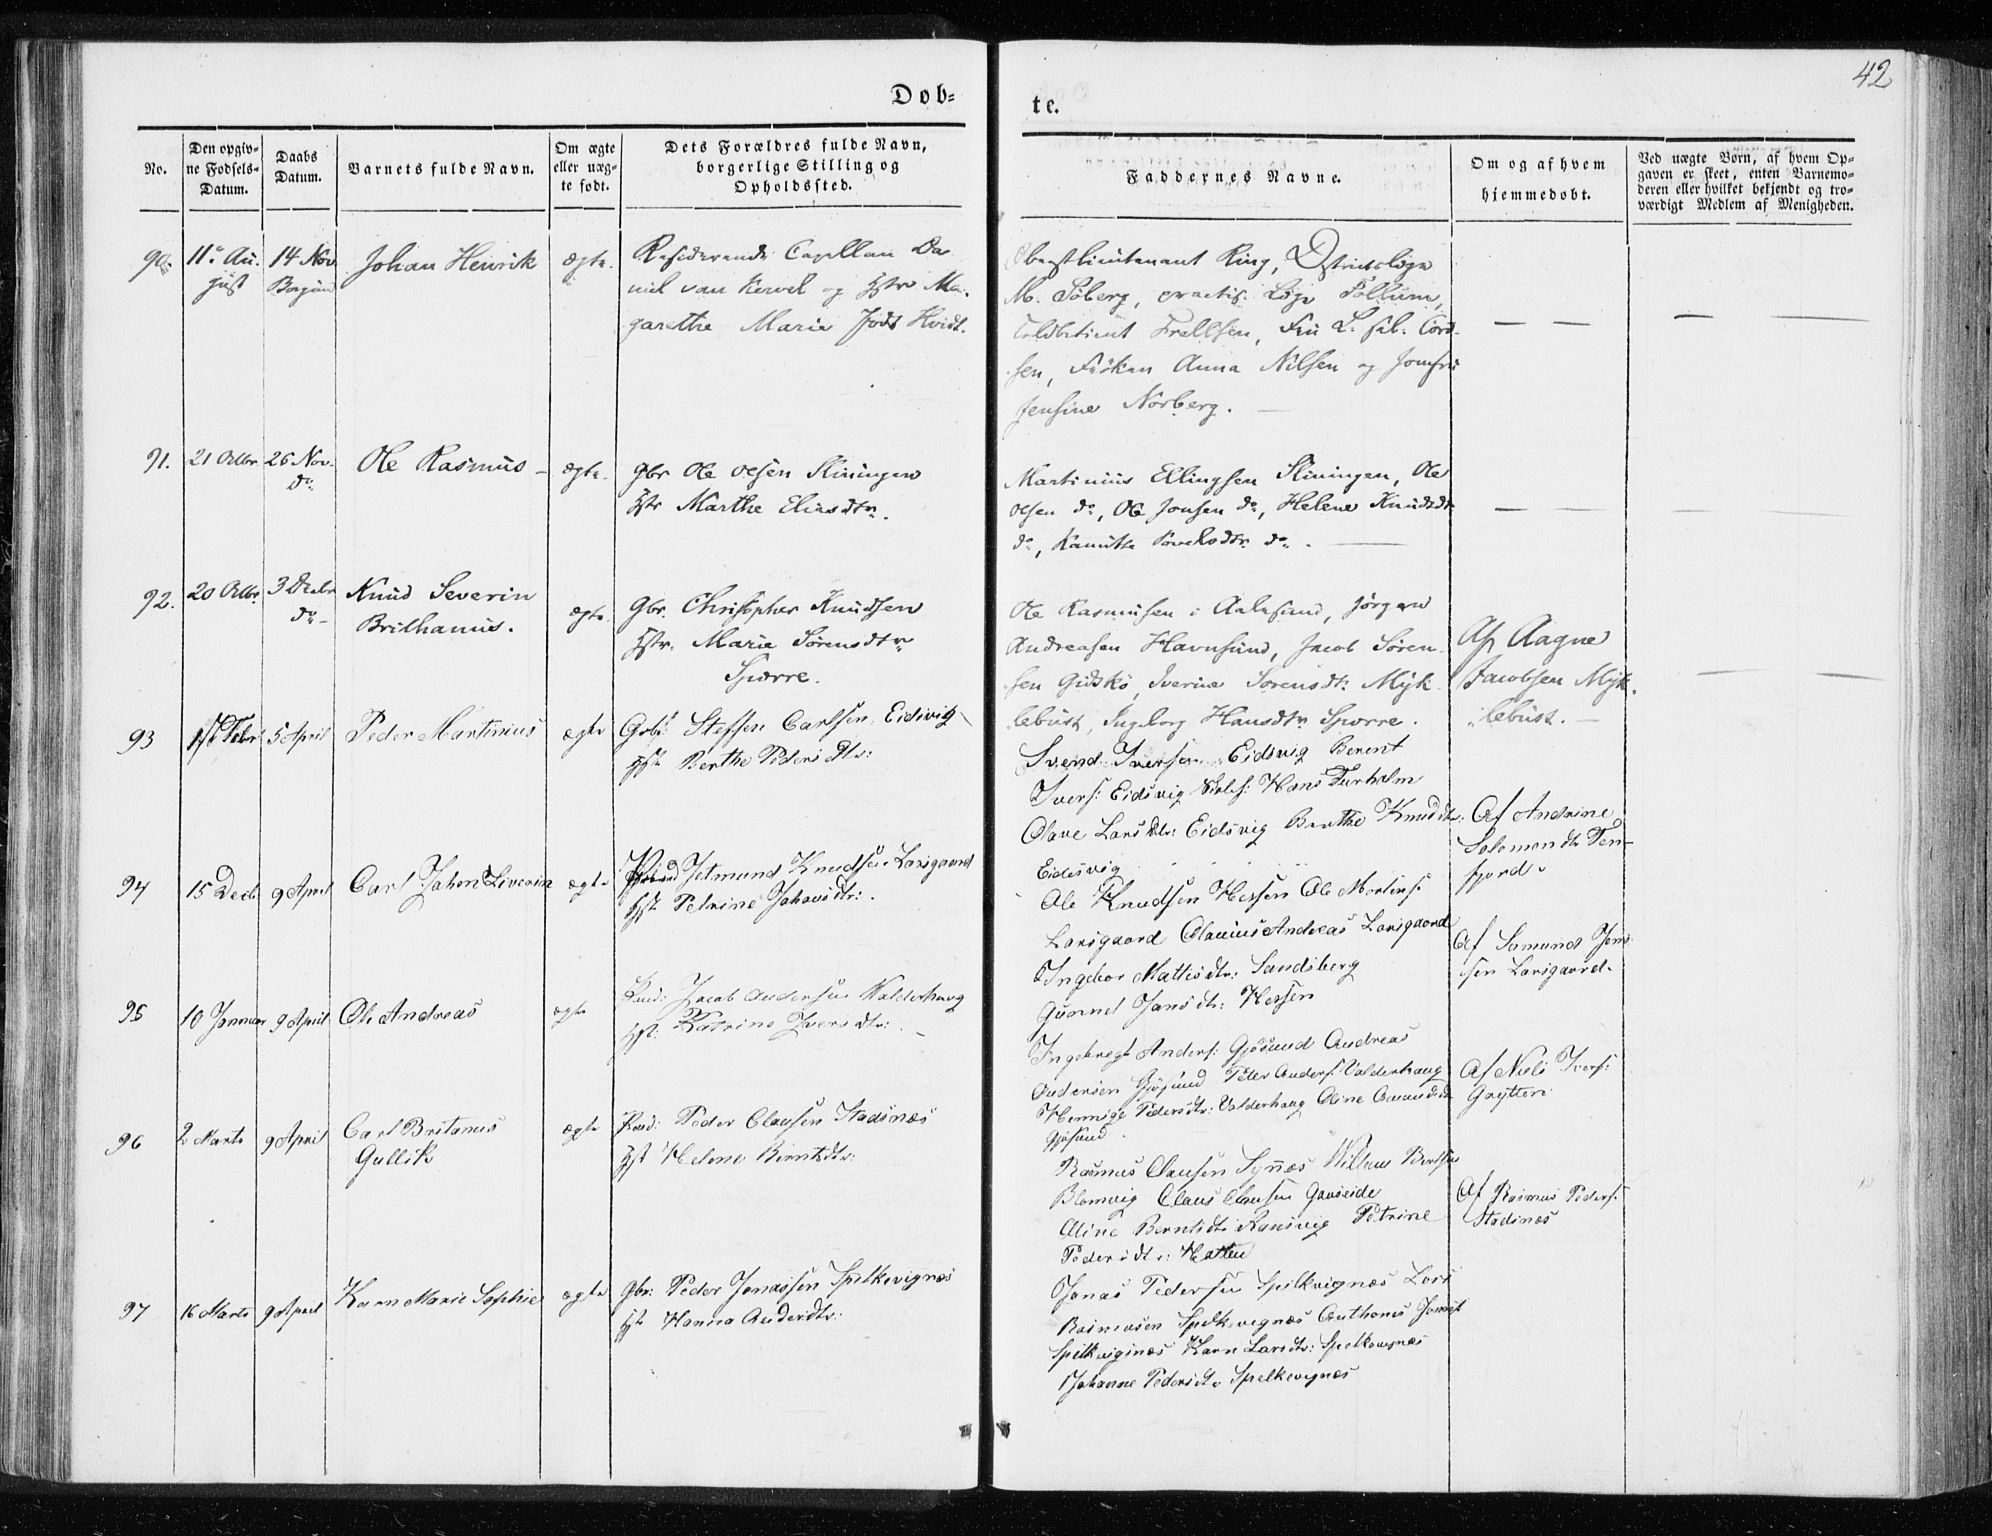 42
Dob=
te.
No.
Den opgiv=
ne Fodsels=
Datum.
Daabs
Datum.
Barnets fulde Navn.
Om ægte
eller uæg=
te født.
Dets Forældres fulde Navn,
borgerlige Stilling og
Opholdssted.
Faddernes Navne.
Om og af hvem
hjemmedobt.
Ved uægte Børn, af hvem Op=
gaven er skeet, enten Barnemo=
deren eller hvilket bekjendt og tro=
værdigt Medlem af Menigheden.
90.
11te Au.
gust
14 Nov
Borgund
Johan Henrik
ægte.
Residerende Capellan Da
niel van Kervel og Hstr Ma.
garethe Marie født Hvidt.
Oberstlieutenant Ring, Districtslæge
M. Söberg, practis. Læge Follum,
Toldbetient Frellsen, Fru L. sal: Cord
sen, Frøken Anna Nilsen og Jomfru
Jensine Norberg.
91.
21 Octbr
26 Nov.
do
Ole Rasmus
ægte.
Gbr Ole Olsen Sliningen
Hstr Marthe Eliasdtr.
Martinius Ellingsen Sliningen, Ole
Olsen do, Ole Jonsen do, Helene Knudsdtr
do, Kanutte Povelsdtr do.
92.
20 Octbr
3 Decbr
do
Knud Severin
Brithanus.
ægte.
Gbr. Christopher Knudsen
Hstr. Marie Sørensdtr
Sporre.
Ole Rasmusen i Aalesund, Jørgen
Andreasen Havnsund, Jacob Søren
sen Gidskø, Iverine Sorensdt: Myk
lebust, Ingborg Hansdtr Sporre.
Af Aagne
Jacobsen Myk
lebust.
93
Febr
5 April
Peder Martinus
ægte
Gbr: Steffen Carlsen Eidsvig
Hst Berthe Pedersdtr:
Svend Iversen Eidsvig Berent
Ivers: Eidsvig Hans Furholm
Olave Larsdtr: Eidsvig Berthe Knudsdtr:
Eidsvig
Af Andrine
Salomondtr Fen
fjord
94
15 Decb
9 April
Carl Johan Liverin
ægte
Jetmund Knudsen Larsgaard
Hst Petrine Johansdtr:
Ole Knudsen Hessen Ole Martins:
Larsgaard Olauius Andreas Larsgaard
Ingebor Mattisdtr: Sandsberg
Gunnel Jansdtr: Hessen
Af Samund Jens
sen Larsgaard.
95
10 Januar
9 April
Ole Andreas
ægte
Huusd: Jacob Andersen Valderhaug
Hst. Katrine Iversdtr:
Ingebregt Anders: Gjøsund Andreas
Andersen Gjøsund Peter Anders: Valderhaug
Hennige Pedersdtr: Valderhaug Oline Amundsdtr
Gjøsund
Af Niels Ivers:
Grytten
96
2 Marts
9 April
Carl Britanus
Gullik
ægte
Huusd: Peder Clausen Stadsnæs
Hst Helene Berntsdtr:
Rasmus Clausen Synæs Villum Bertsen
Blomvig Claus Clausen Gaaseide
Oline Berntsdtr Ransvig Petrine
Pedersdtr: Hatlen
Af Rasmus Peders:
Stadsnæs
97
16 Marts
9 April
Karn Marie Sophie
ægte
Gbr: Peder Jonassen Spelkevignæs
Hst Hanna Andersdtr:
Jonas Pedersen Spelkvignæs Lars
Rasmusen Spelkevignæs Anthonis Jonas:
Spelkvignæs Karn Larsdtr: Spelkevignæs
Johanne Pedersdtr Spelkevignæs